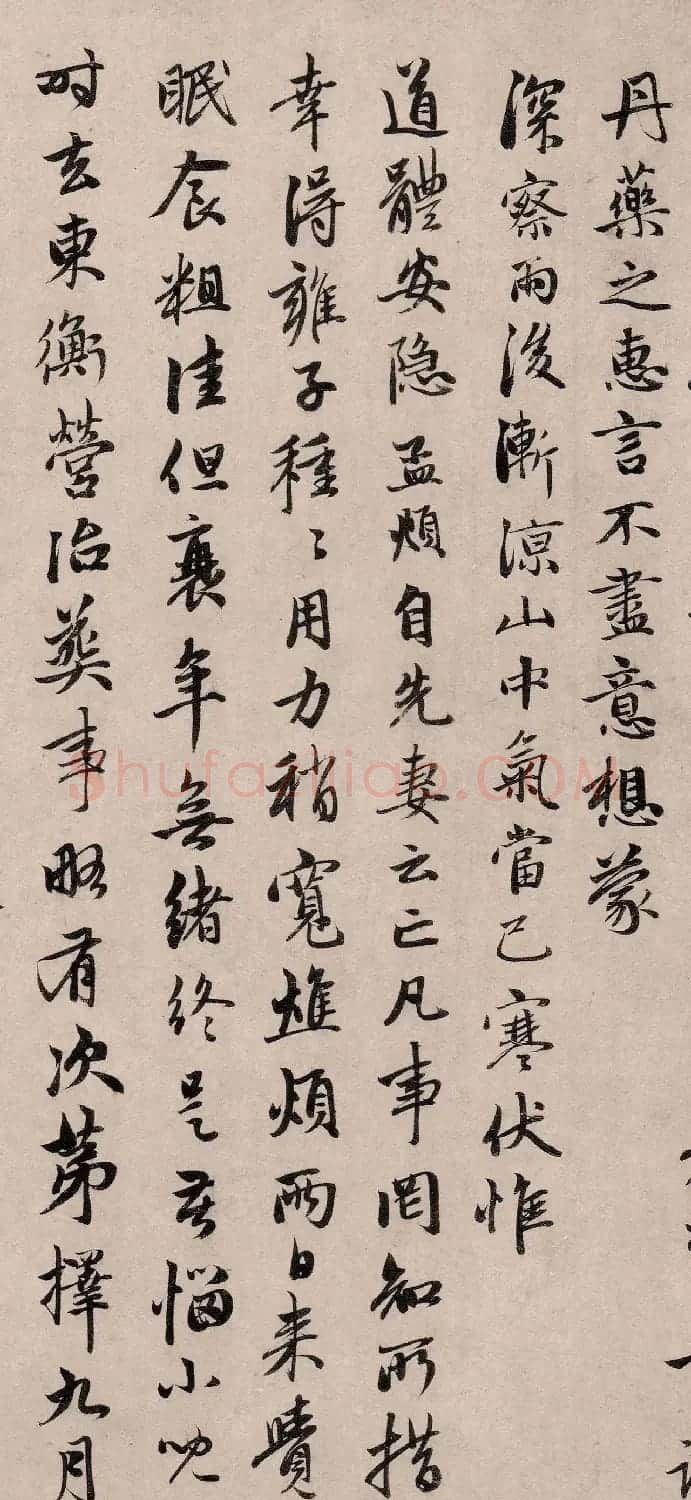 丹藥之惠言不盡意想蒙
深察雨後漸涼山中氣當已寒伏惟
道體安隱孟頫自先妻云亡凡事罔知所措
幸得雍子種〻用力稍寬憔煩兩日來覺
眠食粗佳但衰年無緒終是苦惱小兒
时去東衡營治葬事略有次苐擇九月